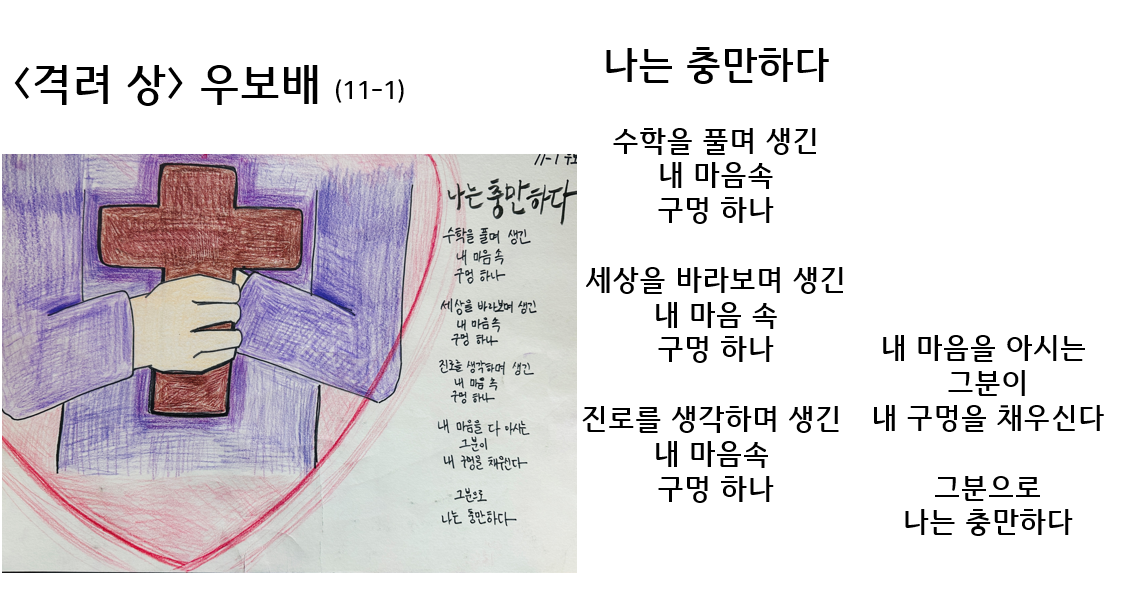 <격려 상> 우보배 (11-1)
11-1 우보
나는 충만하다
수학을 풀며 생긴
내 마음속
구멍 하나
세상을 바라보며 생긴
내 마음속
구멍 하나
진로를 생각하며 생긴
내 마음 속
구멍 하나
내 마음을 다 아시는
그분이
내 구멍을 채우신다
그분으로
나는 충만하다
나는 충만하다
수학을 풀며 생긴
내 마음속
구멍 하나
세상을 바라보며 생긴
내 마음 속
구멍 하나
진로를 생각하며 생긴
내 마음속
구멍 하나
내 마음을 아시는
그분이
내 구멍을 채우신다
그분으로
나는 충만하다